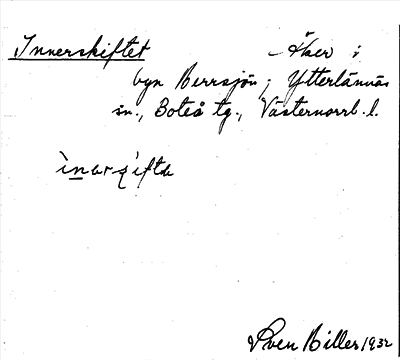 Innerskiftet - Åker i
byn Berrsjön, Ytterlännäs
sn., Boteå tg., Västernorrl. l.
ìnarʂìfta
Sven Biller 1932